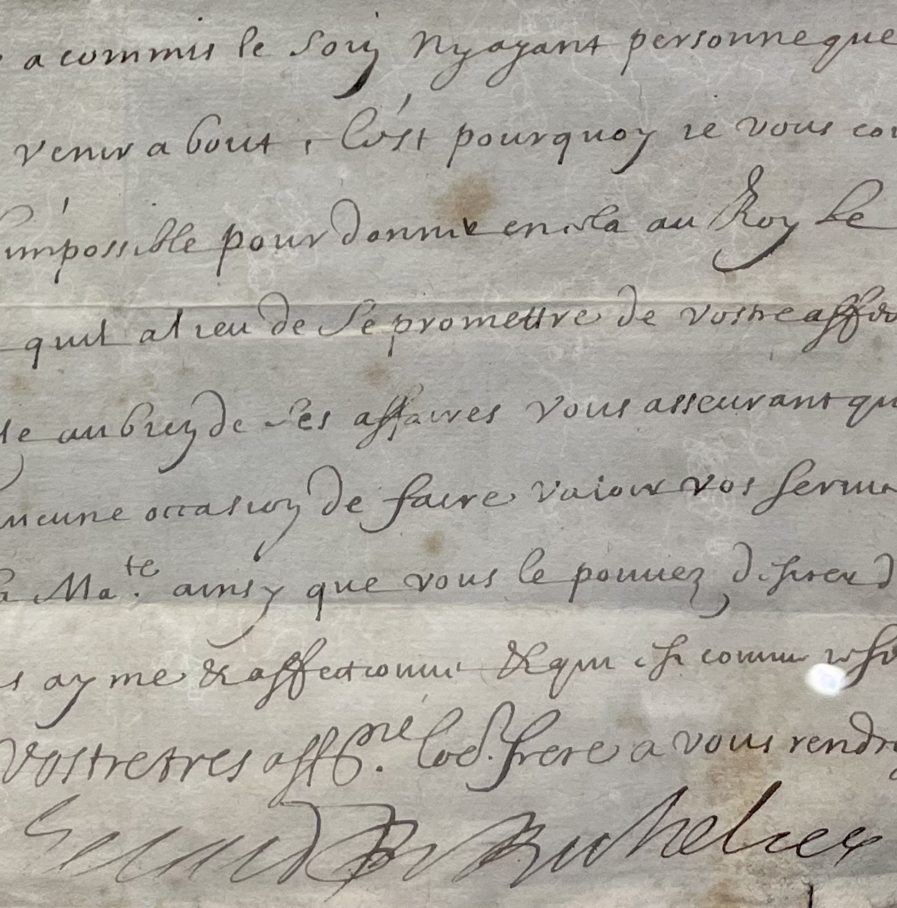 a commis le soin ny ayant personne que
venir a bout, C'est pourquoy ie vous
l'impossible pour donner en cela au Roy le
quil a lieu de se promettre de vostre
au bien de ses affaires vous asseurant
aucune occasion de faire valoir vos
Ma.te ainsy que vous le pouuez desirer
ayme & affectionne & qui est comme
Vostre tres aff.né frere a vous rendre
Card de Richelieu